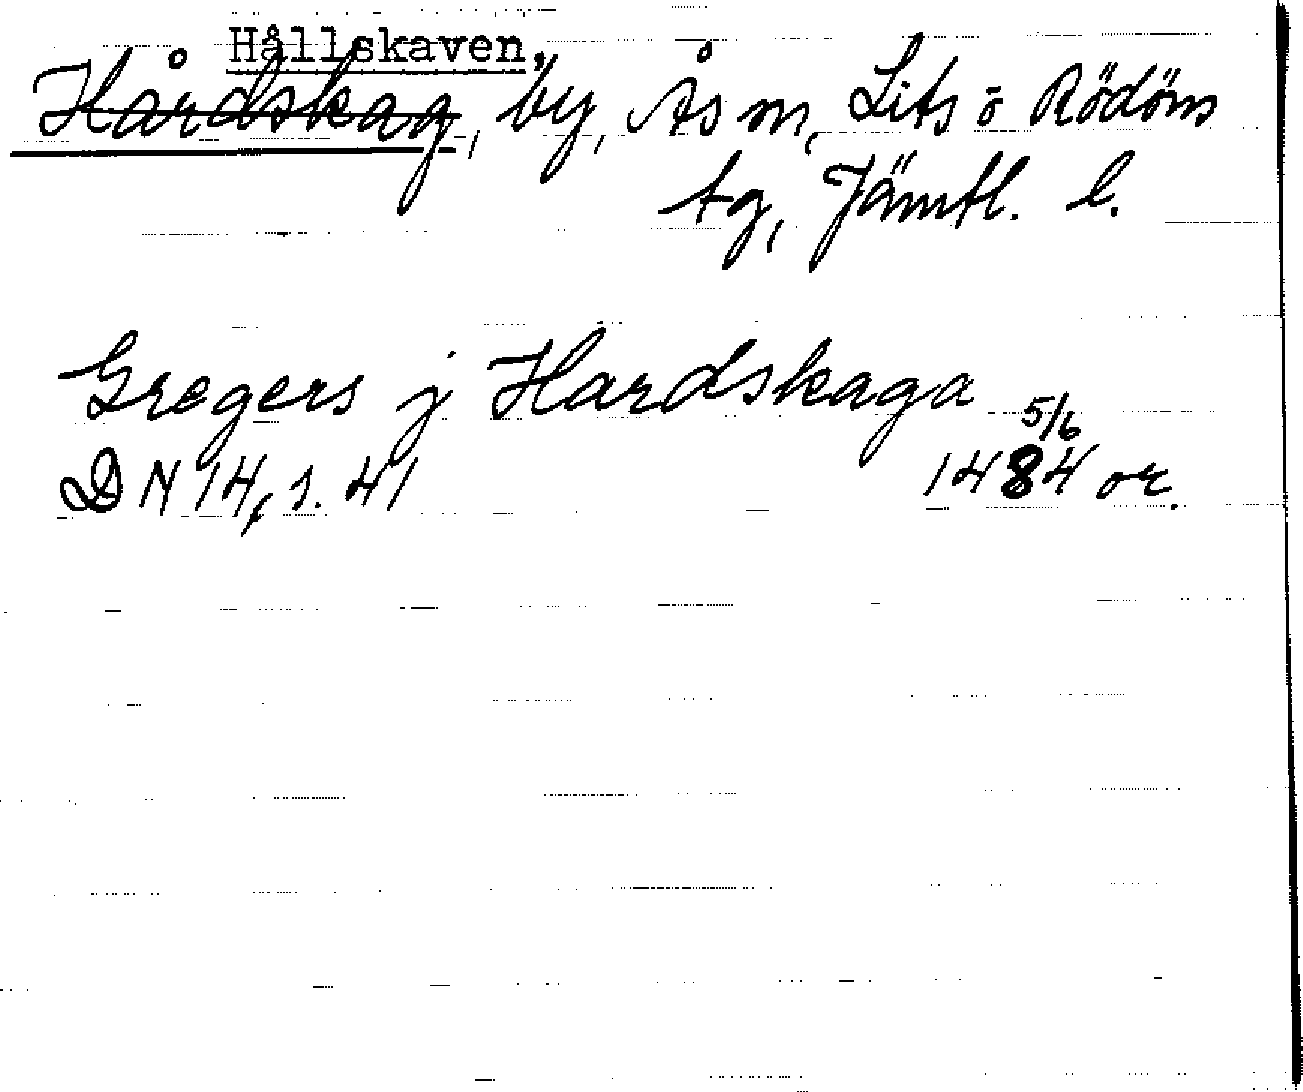 Hållskaven,
Hårdskag, by, Ås sn, Lits o Rödöns
tg, Jämtl. l.
Gregers j Hardskaga
5/6
DN 14, s. 41 1484 or.